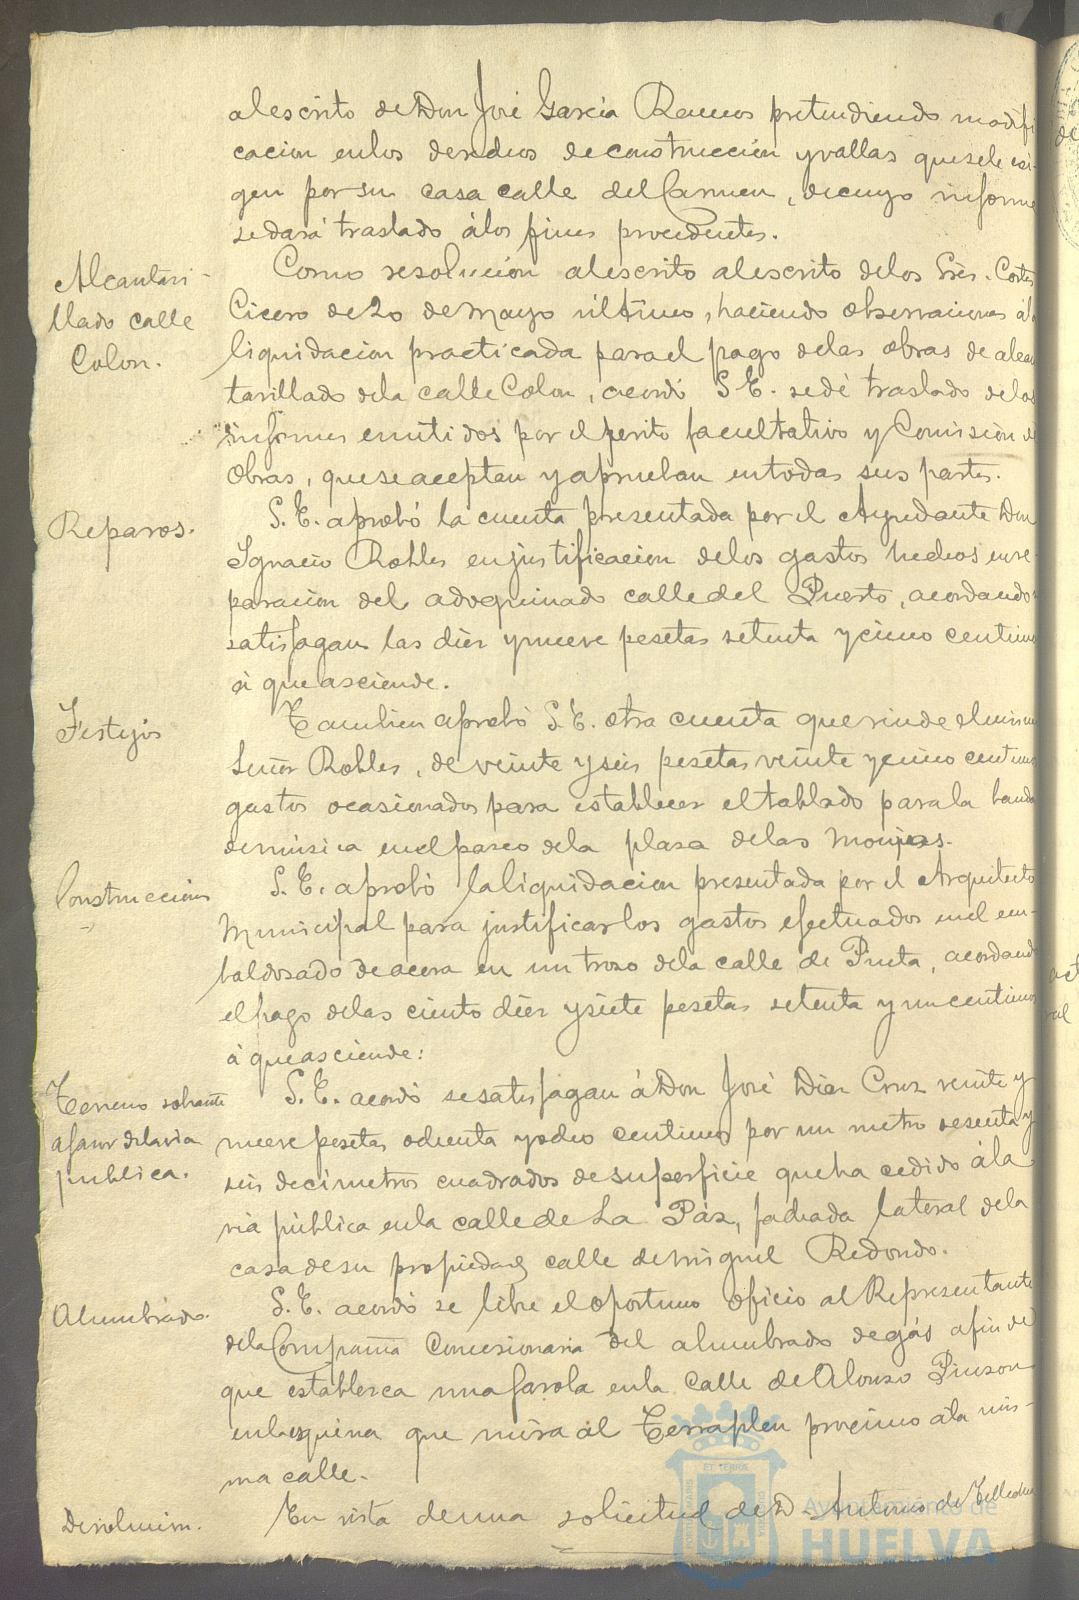 al escrito de Don José García Ramos pretendiendo modifi
cacion en los derechos de construccion y vallas que se le exi-
gen por su casa calle del Carmen, de cuyo informe
se dará traslado á los fines procedentes.
Alcantari-
llado calle
Colon.
Como resolucion al escrito al escrito de los Sres. Cortes
Cicero de 20 de Mayo último, haciendo observaciones á la
liquidacion practicada para el pago de las obras de alcan
tarillado de la calle Colon, acordó S. E. se dé traslado de los
informes emitidos por el perito facultativo y Comision de
Obras, que se aceptan y aprueban en todas sus partes.
Reparos.
S. E. aprobó la cuenta presentada por el Ayudante Don
Ignacio Robles en justificacion de los gastos hechos en re-
paracion del adoquinado calle del Puerto, acordando
satisfagan las diez y nueve pesetas setenta y cinco centimos
á que asciende.
Festejos
Tambien aprobó S. E. otra cuenta que rinde el mismo
Señor Robles, de veinte y seis pesetas veinte y cinco centimos
gastos ocasionados para establecer el tablado para la banda
de música en el paseo de la plaza de las Monjas.
Construccion
S. E. aprobó la liquidacion presentada por el Arquitecto
Municipal para justificar los gastos efectuados en el em-
baldosado de acera en un trozo de la calle de Puerta, acordando
el pago de las ciento diez y siete pesetas setenta y un centimos
á que asciende:
Terreno sobrante
a favor de la via
publica.
S. E. acordó se satisfagan á Don José Diaz Cruz veinte y
nueve pesetas ochenta y ocho centimos por un metro sesenta y
seis decimetros cuadrados de superficie que ha cedido á la
via pública en la calle de La Paz, fachada lateral de la
casa de su propiedad calle de Miguel Redondo.
Alumbrado.
S. E. acordó se libre el oportuno oficio al Representante
de la Compañia Concesionaria del alumbrado de gas a fin de
que establezca una farola en la calle de Alonso Pinzon
en la esquina que mira al Terraplen procsimo á la mis-
ma calle.
Devolucion.
En vista de una solicitud de D. Antonio de
Ayuntamiento de
HUELVA